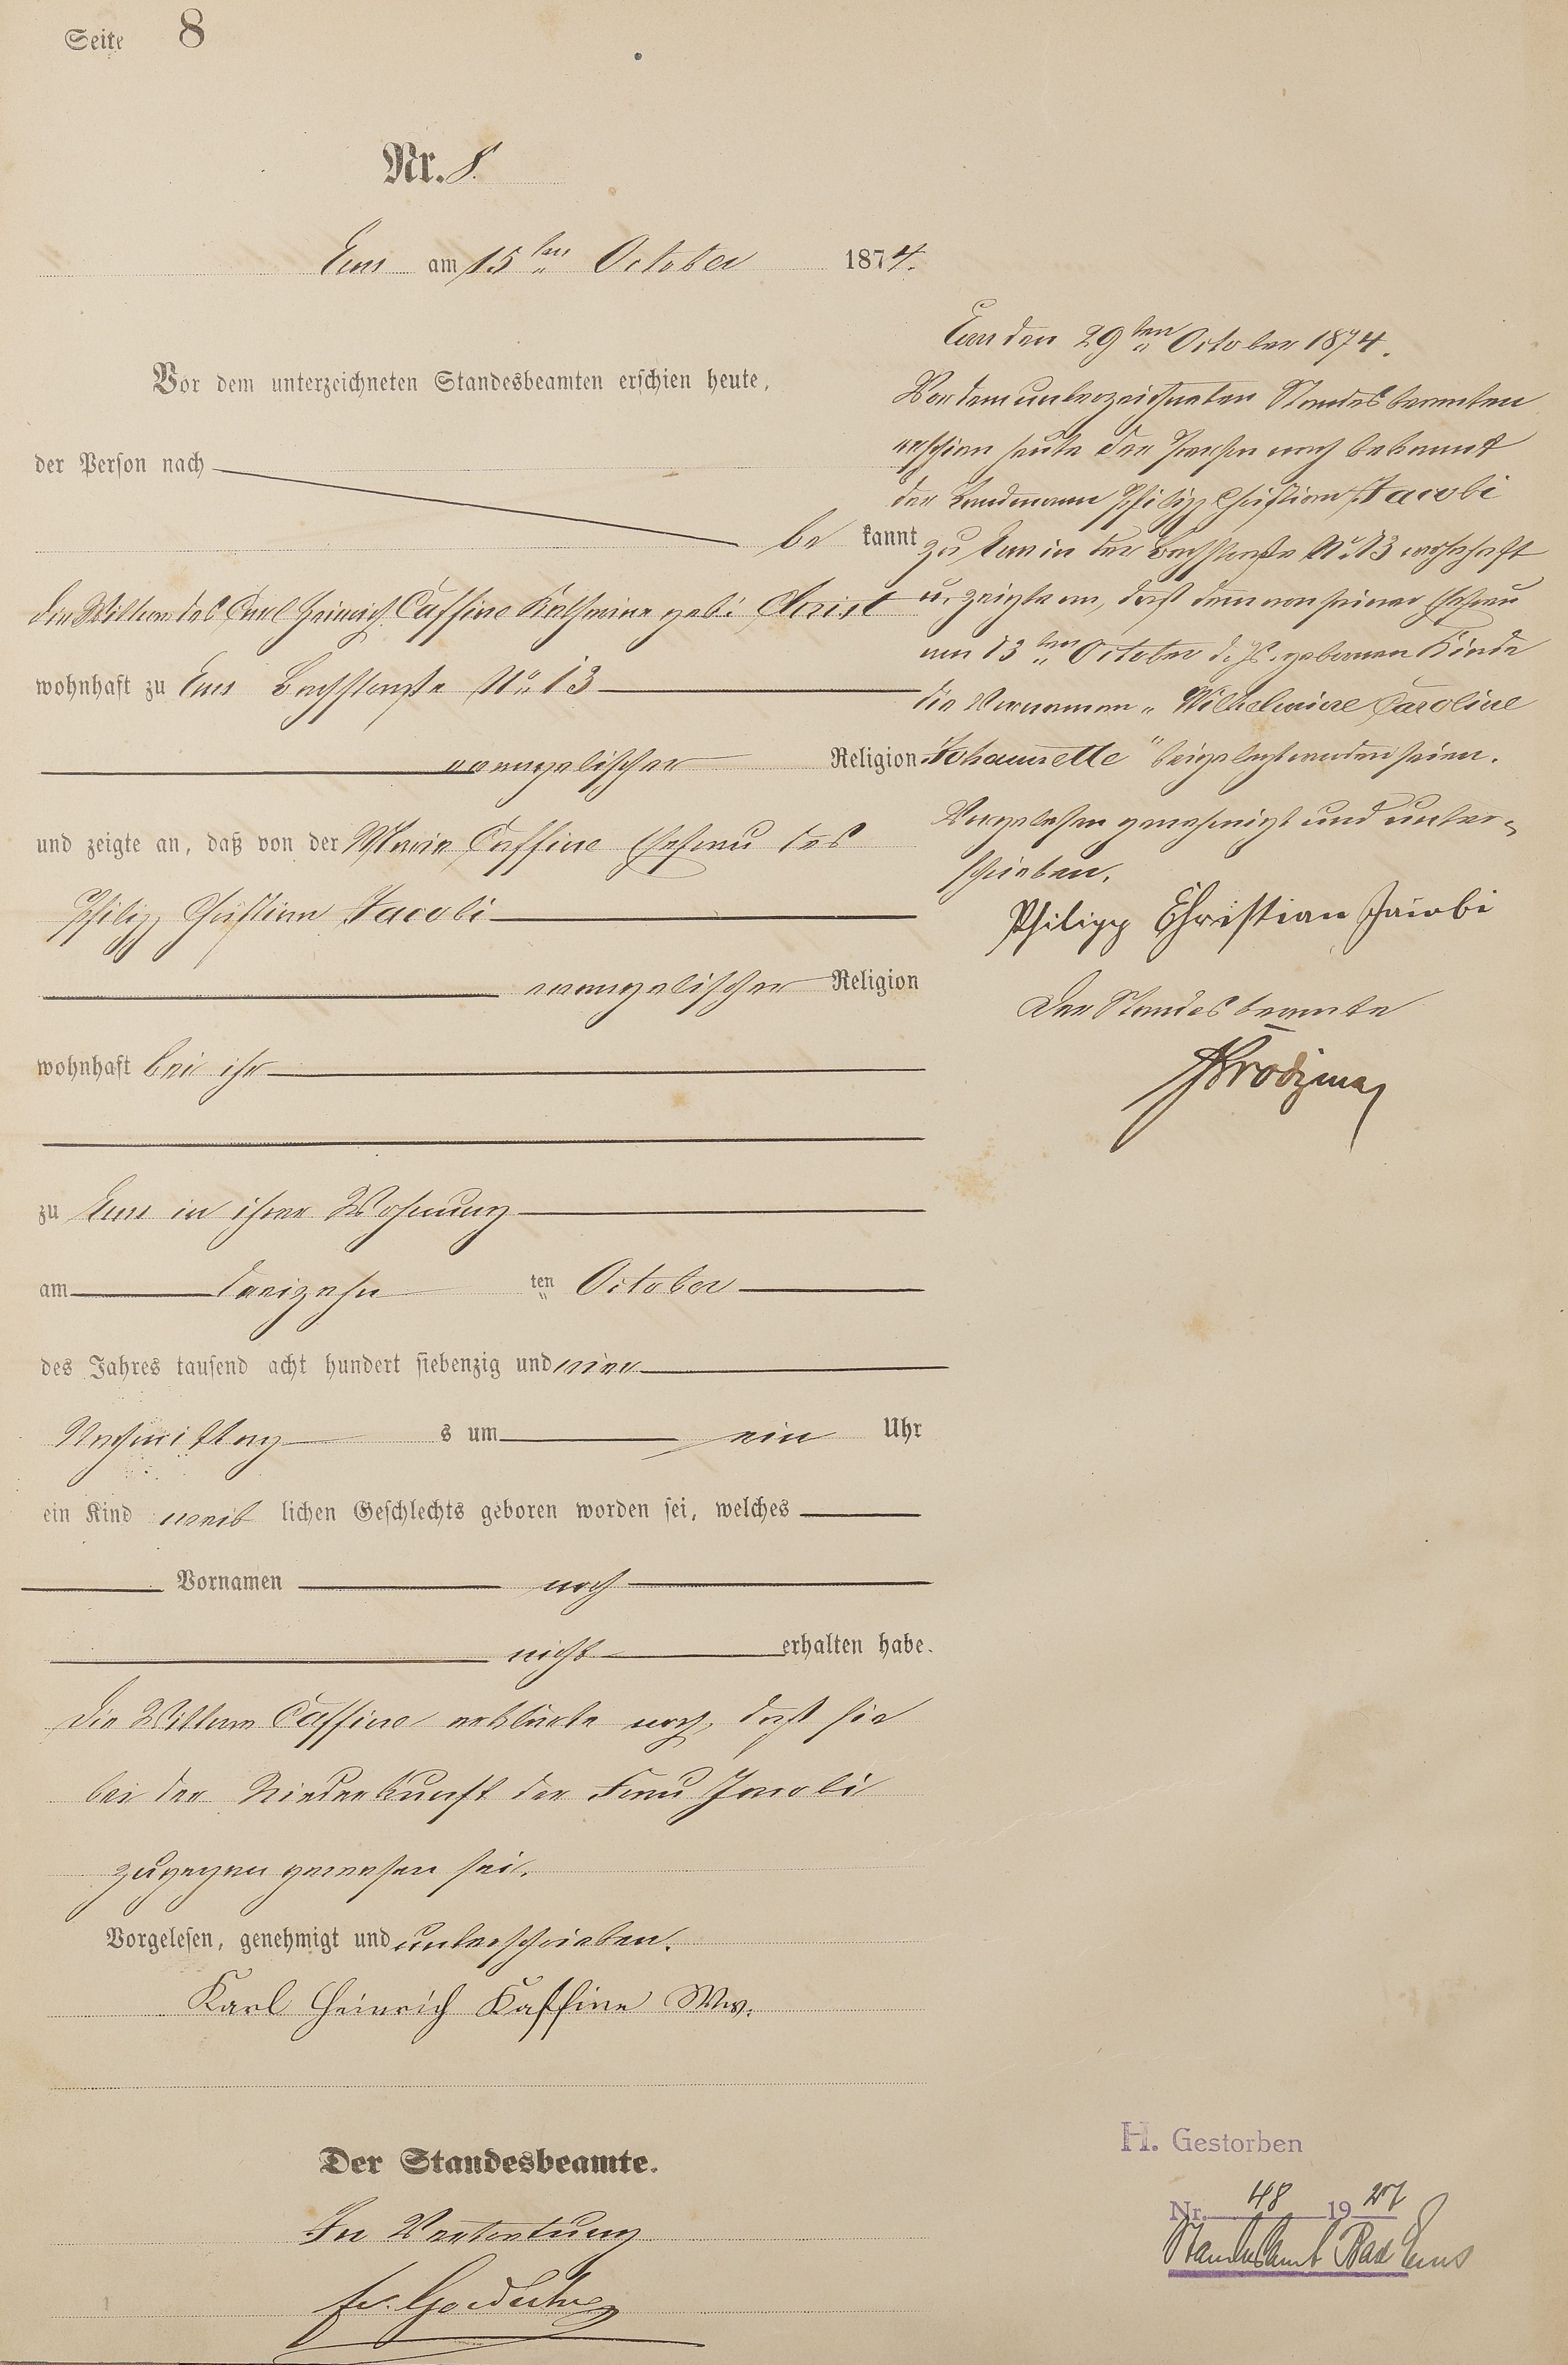 Seite 8
Nr. 8.
Ems am 15ten October 1874.
Vor dem unterzeichneten Standesbeamten erschien heute,
der Person nach
be kannt
die Wittwe des Carl Heinrich Caffine Katharine geb: Christ
wohnhaft zu Ems Bachstraße No 13
evangelischer Religion
und zeigte an, daß von der Marie Caffine Ehefrau des
Philipp Christian Jacobi
evangelischer Religion
wohnhaft bei ihr
zu Ems in ihrer Wohnung
am dreizehn ten October
des Jahres tausend acht hundert siebenzig und vier
Nachmittag s um ein Uhr
ein Kind weib lichen Geschlechts geboren worden sei, welches
Vornamen noch
nicht erhalten habe.
Die Wittwe Caffine erklärte noch, daß sie
bei der Niederkunft der Frau Jacobi
zugegen gewesen sei.
Vorgelesen, genehmigt und unterschrieben.
Karl Heinrich Kaffine Ww.
Der Standesbeamte.
In Vertretung
Ems den 29ten October 1874.
Vor dem unterzeichneten Standesbeamten
erschien heute der Person nach bekannt
der Landmann Philipp Christian Jacobi
zu Ems in der Bachstraße No. 13 wohnhaft
u. zeigte an, daß dem von seiner Ehefrau
am 13ten October d. Js. geborenen Kinde
die Vornamen „Wilhelmine Caroline
Johannette" beigelegt worden seien.
Vorgelesen genehmigt und unter-
schrieben.
Philipp Christian Jacobi
Der Standesbeamte
H. Gestorben
Nr. 48 1927
Standesamt Bad Ems